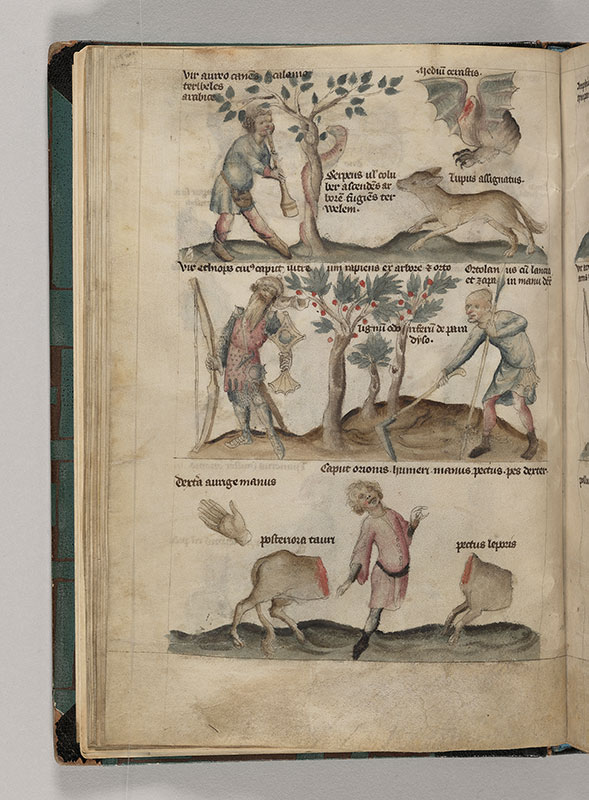 Vir aureo canens calamo
teribeles
arabice
Medium cervi
Serpens vel colu
ber ascendens ar
borem fugiens ter
Lupus assignatus.
Vir ethiops cuius caput vitre um rapiens ex arbore et orto
Ortolan us cum lancea
et zapa in manu
lignum odo riferum de para
dyso.
Caput orionis. humeri. manus. pectus. pes dexter
Dextra aurige manus
posteriora tauri
pectus leporis